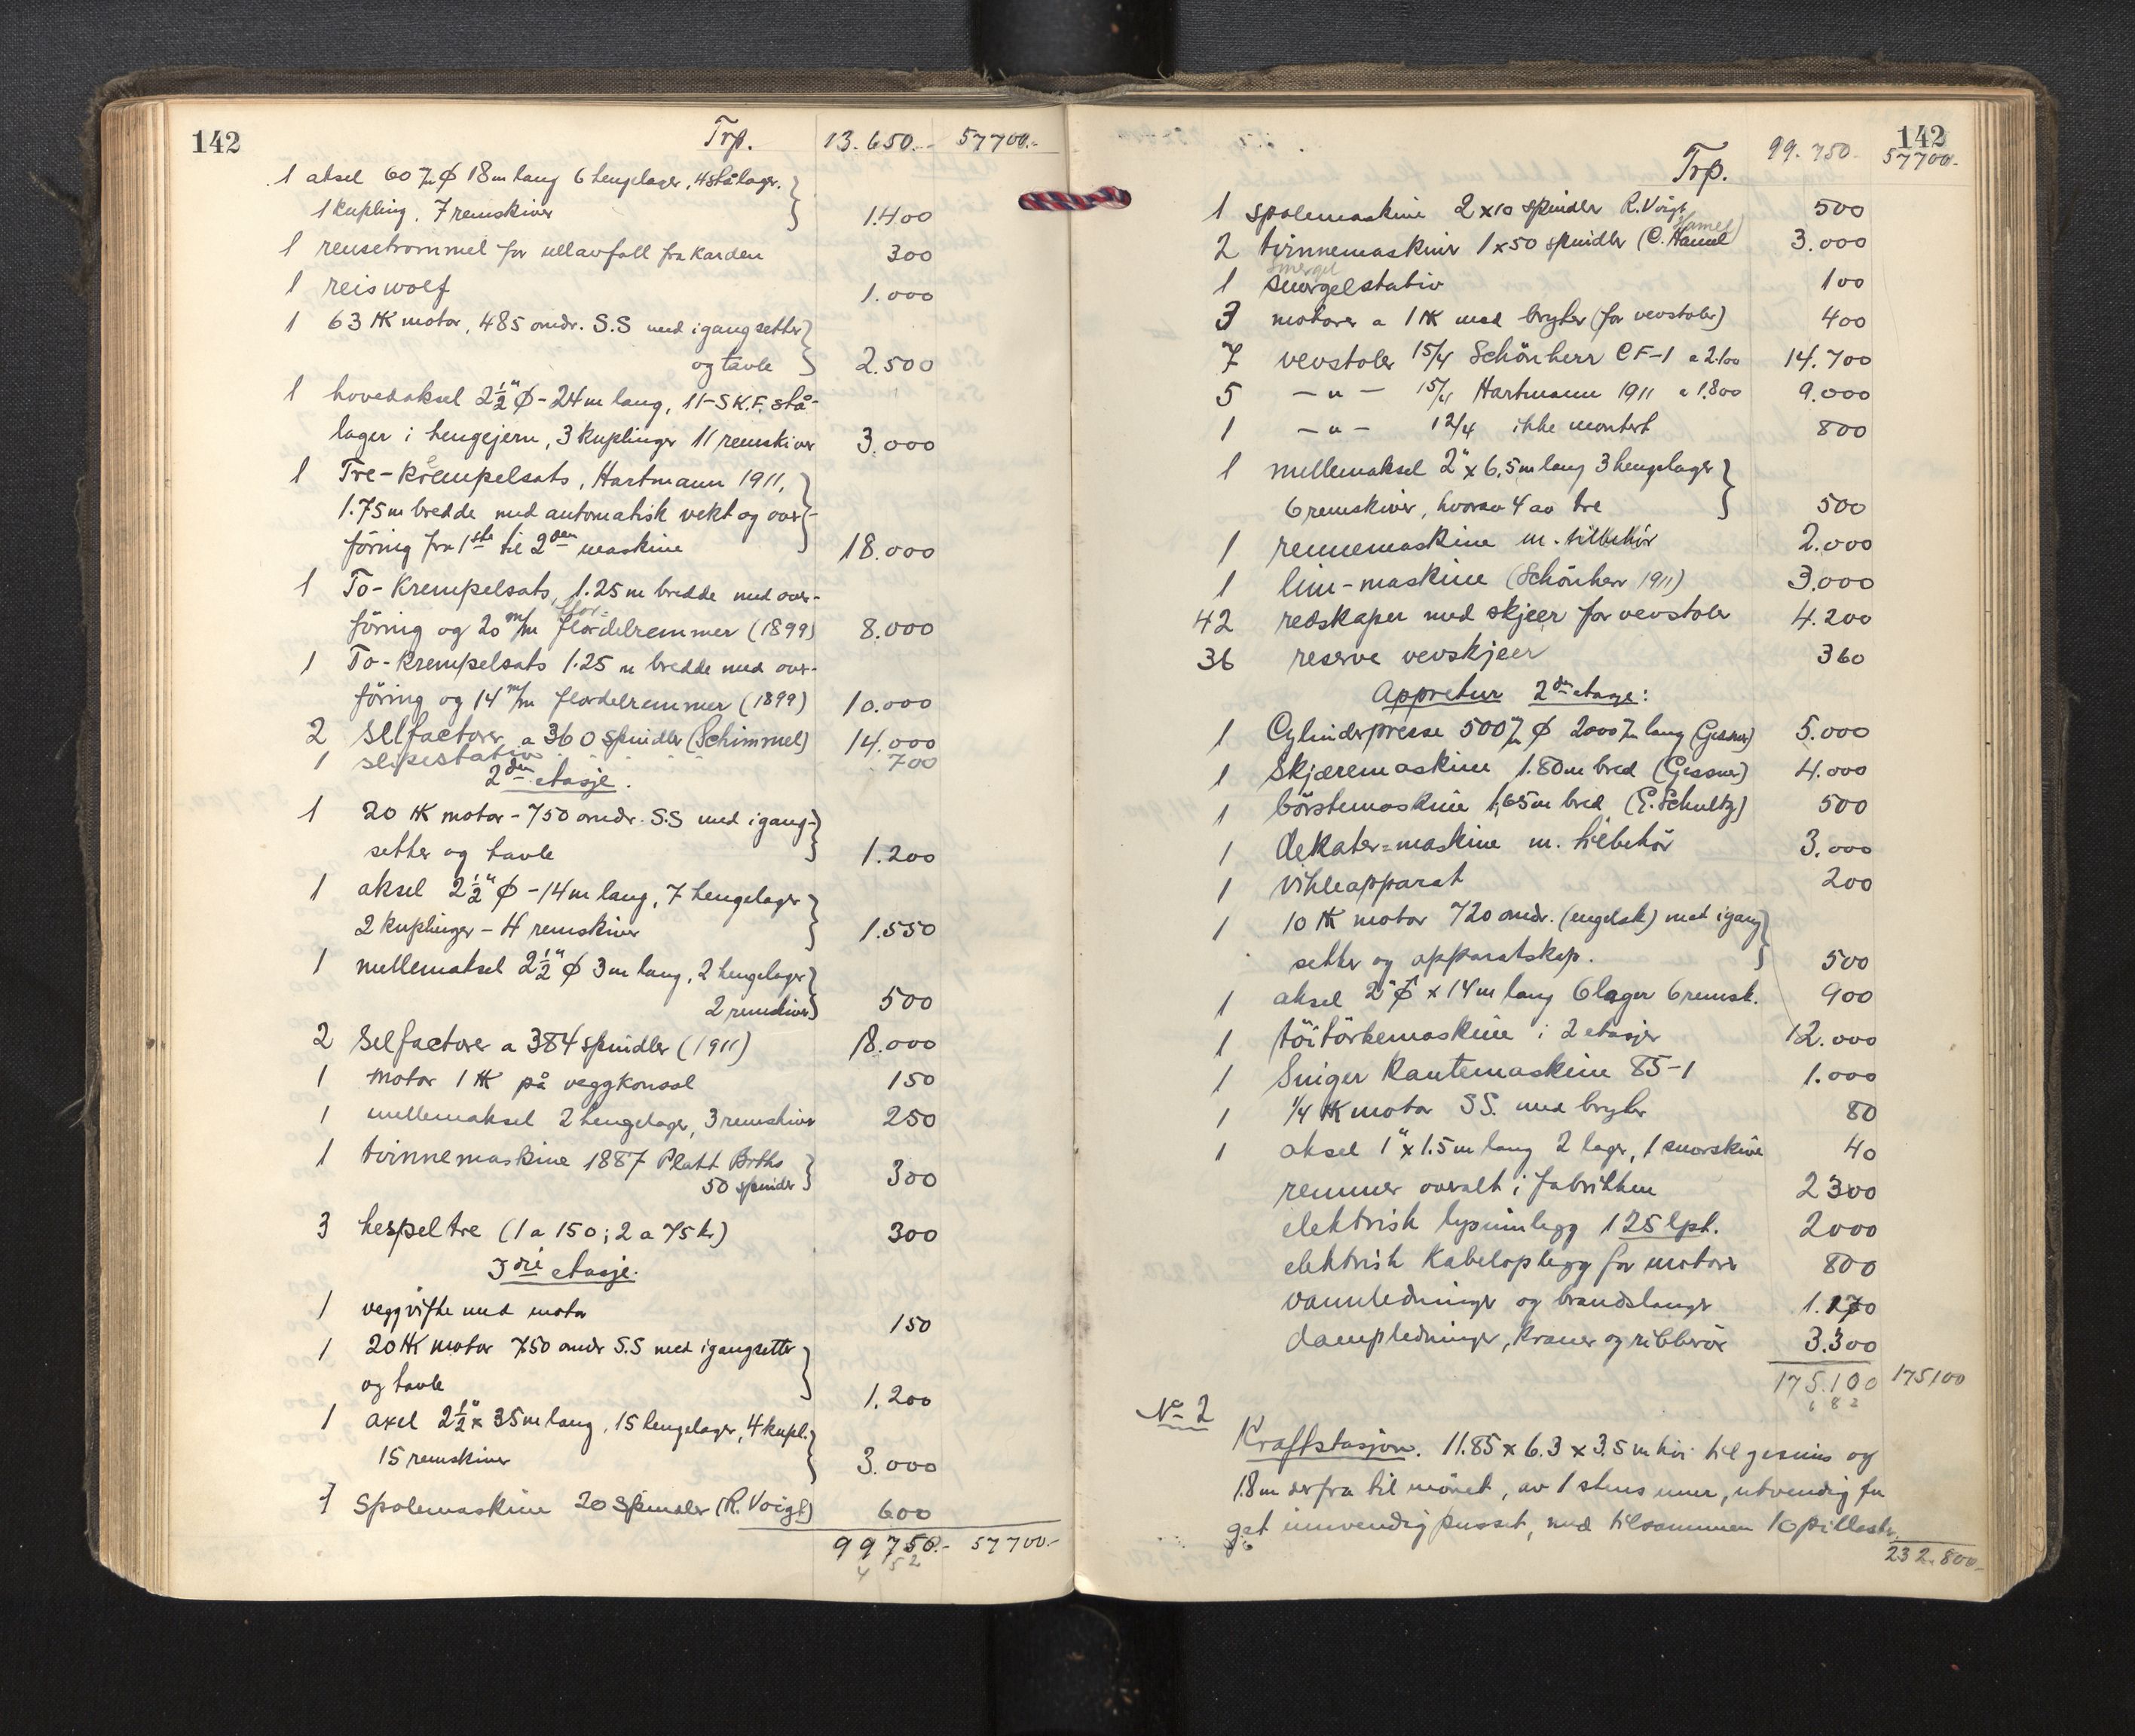 142 Trp. 13.650.- 57700.-
1 aksel 60 m/m Ø 18 m lang 6 hengelager, 4 stålager.
1 kupling, 7 remskiver 1.400
1 rensetrommel for ullavfall fra karden 300
1 reiswolf 1.000
1 63 HK motor, 485 omdr. S.S med igangsetter
og tavle 2.500
1 hovedaksel 2½" Ø - 24 m lang, 11-S.K.F. stå-
lager i hengejern, 3 kuplinger 11 remskiver 3.000
1 Tre-krempelsats, Hartmann 1911,
1.75 m bredde med automatisk vekt og over-
föring fra 1ste til 2den maskine 18.000
1 To-Krempelsats, 1.25 m bredde med over-
flor=
föring og 20 m/m flordelremmer (1899) 8.000
1 To-krempelsats 1.25 m bredde med over-
föring og 14 m/m flordelremmer (1899) 10.000
2 Selfactorer a 360 spindler (Schimmel) 14.000
1 slipestativ 700
2den etasje.
1 20 HK motor - 750 omdr. S.S med igang-
setter og tavle 1.200
1 aksel 2½" Ø - 14 m lang, 7 hengelager
2 kuplinger - 4 remskiver 1.550
1 mellemaksel 2½" Ø 3 m lang, 2 hengelager
2 remskiver 500
2 Selfactorer a 384 spindler (1911) 18.000
1 motor 1 HK på veggkonsol 150
1 mellemaksel 2 hengelager, 3 remskiver 250
1 tvinnemaskine 1887 Platt Broths
50 spindler 300
3 hespeltre (1 a 150; 2 a 75 kr) 300
3die etasje.
1 veggvifte med motor 150
1 20 HK motor 750 omdr S.S med igangsetter
og tavle 1.200
1 axel 2½" x 35 m lang, 15 hengelager, 4 kupl.
15 remskiver 3.000
1 Spolemaskine 20 Spindler (R. Voigt) 600
99750.- 57700.-
4 52
142
Trp. 99.750.- 57700.-
1 spolemaskine 2 x 10 spindler R. Voigt 500
Hamel)
2 tvinnemaskiner 1 x 50 spindler (C. Hamel 3.000
Smergel
1 smergelstativ 100
3 motorer a 1 HK med bryter (for vevstoler) 400
7 vevstoler 15/4 Schönherr CF-1 a 2100 14.700
5 -"- 15/4 Hartmann 1911 a 1.800 9.000
1 -"- 12/4 ikke montert 800
1 mellemaksel 2" x 6.5 m lang 3 hengelager
6 remskiver, hvorav 4 av tre 500
1 rennemaskine m. tilbehör 2.000
1 lim-maskine (Schönherr 1911) 3.000
42 redskaper med skjeer for vevstoler 4.200
36 reserve vevskjeer 360
Appretur 2den etasje:
1 Cylinderpresse 500 m/m Ø 2000 m/m lang (Gessner) 5.000
1 Skjæremaskine 1.80 m bred (Gessner) 4.000
1 börstemaskine 1,65 m bred (E. Schultz) 500
1 dekater=maskine m. tilbehör 3.000
1 vikleapparat 200
1 10 HK motor 720 omdr. (engelsk) med igang
setter og apparatskap. 500
1 aksel 2" Ø x 14 m lang 6 lager 6 remsk. 900
1 töitörkemaskine i 2 etasjer 12.000
1 Singer Kantemaskine 85-1 1.000
1 1/4 HK motor S.S. med bryter 80
1 aksel 1" x 1.5 m lang 2 lager, 1 snorskive 40
remmer overalt i fabrikken 2300
elektrisk lysinnlegg 125 lpt. 2000
elektrisk kabelopplegg for motorer 800
vannledninger og brandslanger 1.170
dampledninger, kraner og ribberör 3.300
175.100 175100
6 8 2
No 2
Kraftstasjon. 11.85 x 6.3 x 3.5 m höi til gesims og
1.8 m derfra til mönet, av 1 stens mur, utvendig fu
get innvendig pusset, med tilsammen 10 pillastr.
232.800.-